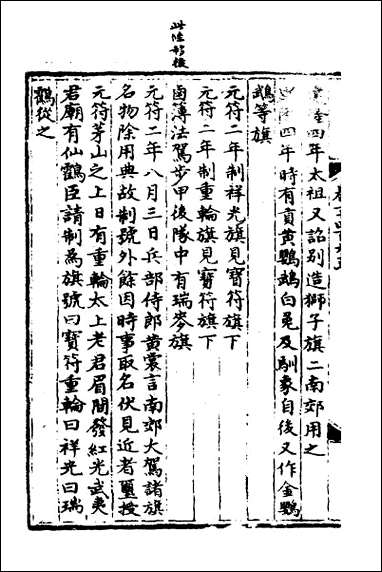 四年太祖又詔别造獅子旗二南郊用之
四年時有貢黃鸚鵡白兎及馴象自後又作金鸚
鵡等旗
元符二年制祥光旗見寶符旗下
元符二年制重輪旗見寶符旗下
鹵簿法駕步甲後隊中有瑞麥旗
元符二年八月三日兵部侍郎黃裳言南郊大駕諸旗
名物除用典故制號外餘因時事取名伏見近者璽授
元符茅山之上日有重輪太上老君眉間發紅光武夷
君廟有仙鶴臣請制為旗號曰寶符重輪曰祥光曰瑞
鶴從之